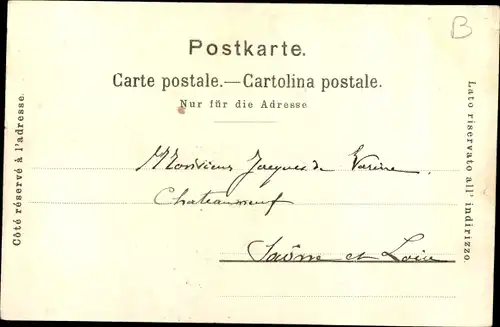 B
Postkarte.
Carte postale.—Cartolina postale.
Nur für die Adresse
Côté réservé à l'adresse.
Monsieur Jacques de Varine
Chateauneuf
Saône et Loire
Lato riservato all' indirizzo.